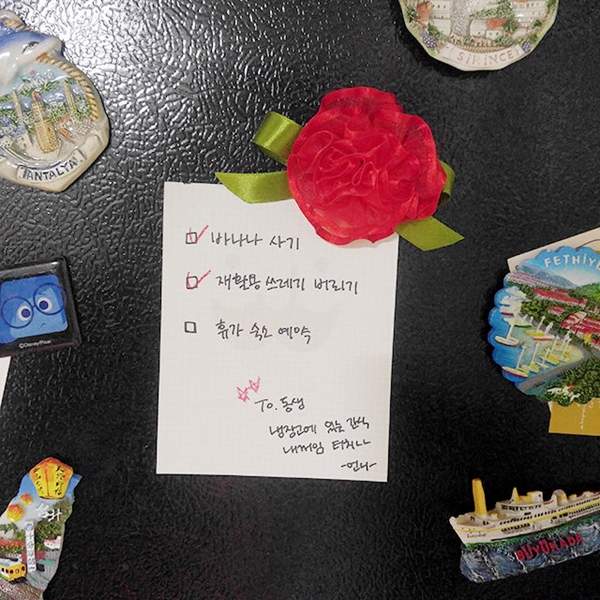 ŞİRİNCE
ANTALYA
FETHİYE
바나나 사기
재활용 쓰레기 버리기
휴가 숙소 예약
©Disney/Pixar
To. 동생
냉장고에 있는 간식
내꺼임 터치 ㄴㄴ
-언니-
BÜYÜKADA